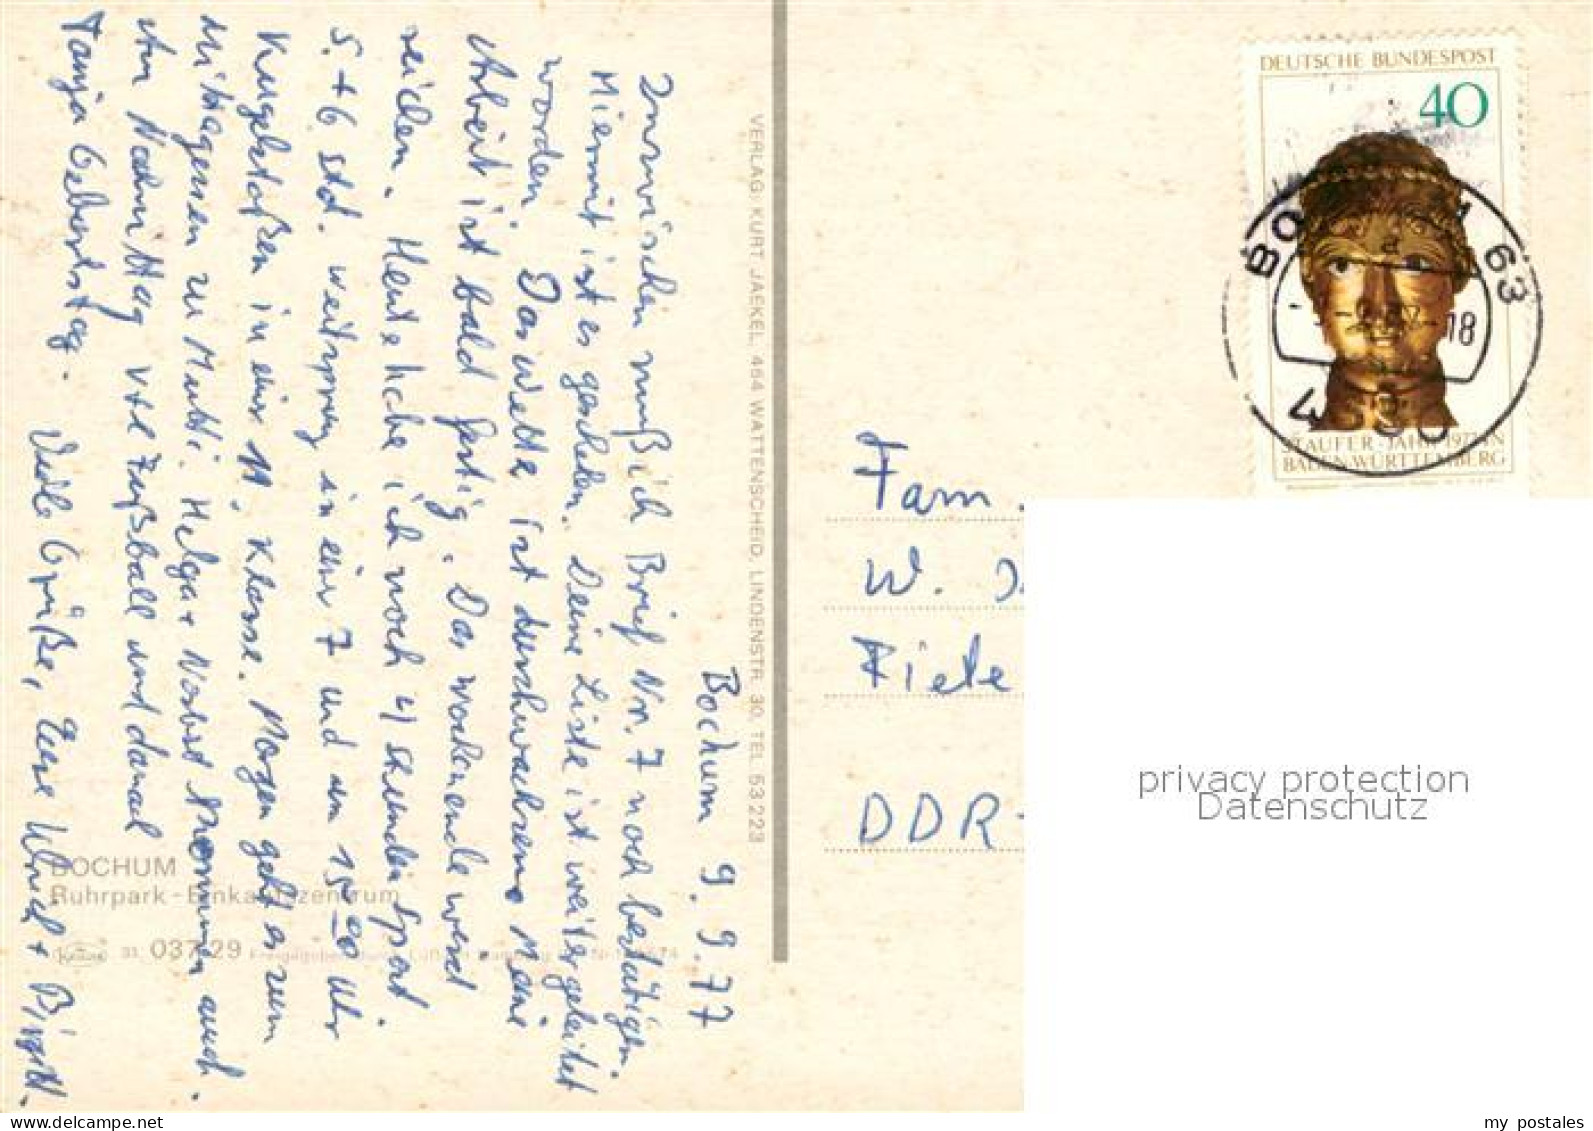 Bochum 9.9.77
Inzwischen muß ich Brief Nr. 7 noch bestätigen.
Hiermit ist es geschehen. Deine Liste ist weitergeleitet
worden. Das Wetter ist durchwachsen. Meine
Arbeit ist bald fertig. Das Wochenende wird
reichen. Heute habe ich noch 4 Stunden Sport.
5.+6 Std. Weitsprung in einer 7 und um 15 00 Uhr
Kugelstoßen in einer 11. Klasse. Morgen geht es zum
Mittagessen zu Mutti. Helga + Norbert kommen auch.
Am Nachmittag Fußball und danach
Tanja Geburtstag. Viele Grüße, Eure Ulrich + Birgitt.
VERLAG: KURT JAEKEL, 464 WATTENSCHEID, LINDENSTR. 30, TEL. 53 223
BOCHUM
Ruhrpark-Einkaufszentrum
31 037/29
DEUTSCHE BUNDESPOST
40
STAUFER-JAHR 1977 IN
BADEN-WÜRTTEMBERG
63
-18
4630
Fam.
W.
DDR-
privacy protection
Datenschutz
my postales